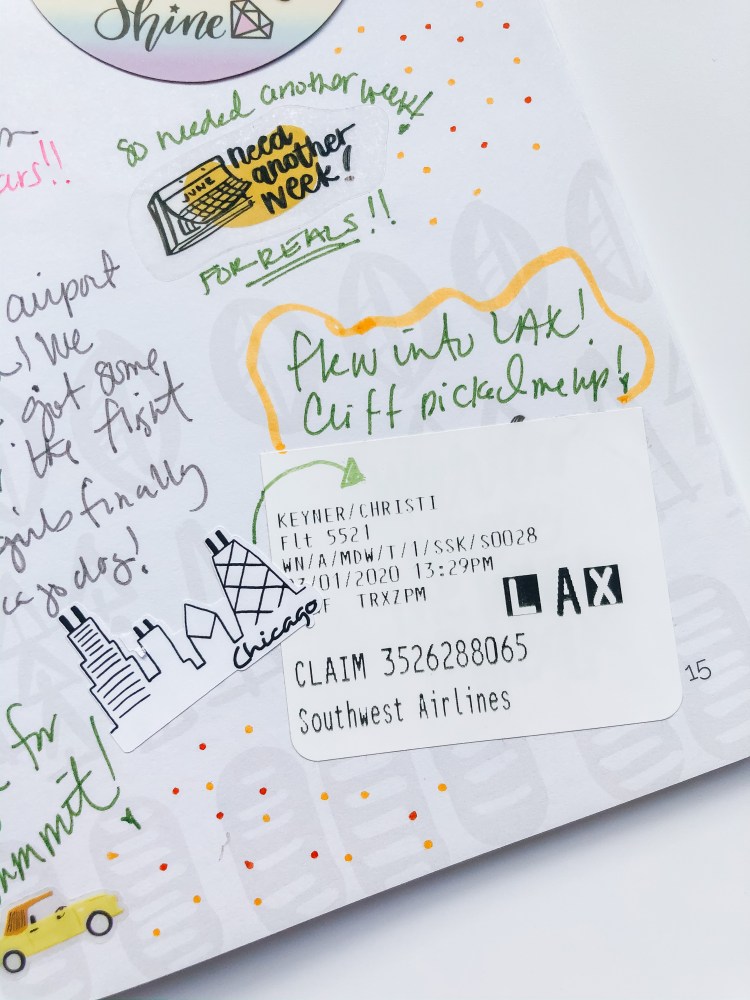 Shine
so needed another week!
need
another
week!
JUNE
FOR REALS!!
airport
We
got some
the flight
girls finally
day!
flew into LAX!
Cliff picked me up!
KEYNER/CHRISTI
Flt 5521
WN/A/MDW/T/1/SSK/S0028
/01/2020 13:29PM
TRXZPM
LAX
CLAIM 3526288065
Southwest Airlines
chicago
15
for